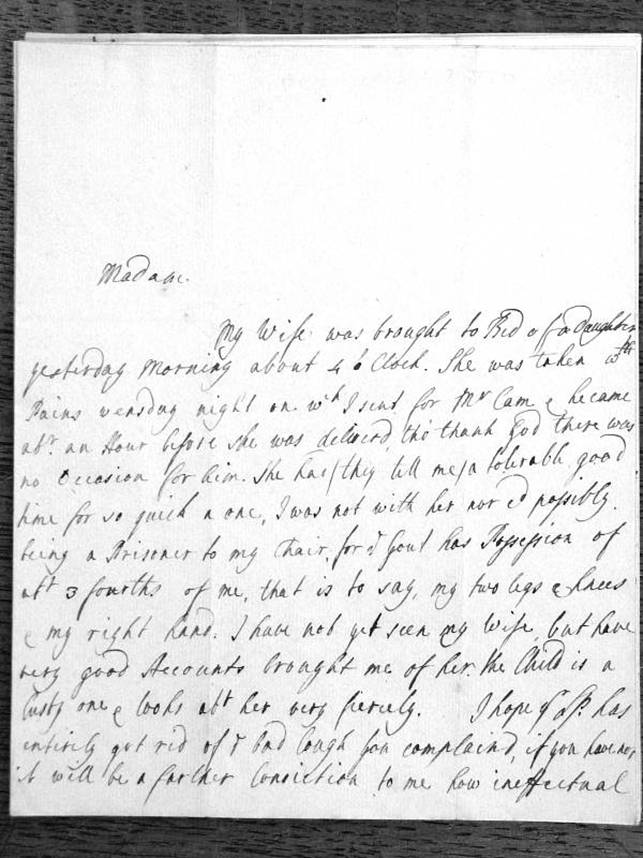 Madam.
My Wife was brought to Bed of a Daughter
yesterday Morning about 4 o Clock. She was taken wth
Pains wensday night on wch I sent for Mr Cam & he came
abt an Hour before she was deliverd, tho' thank God there was
no Occasion for him. She had (they tell me) a tolerable good
time for so quick a one, I was not with her nor cd possibly.
being a Prisoner to my Chair, for ye Gout has Possession of
abt 3 fourths of me, that is to say, my two legs & knees
& my right hand. I have not yet seen my Wife, but have
very good Accounts brought me of her. the Child is a
lusty one & looks abt her very fiercely. I hope yr Lsp. has
entirely got rid of ye bad Cough you complaind, if you have not
it will be a farther Conviction to me how ineffectual